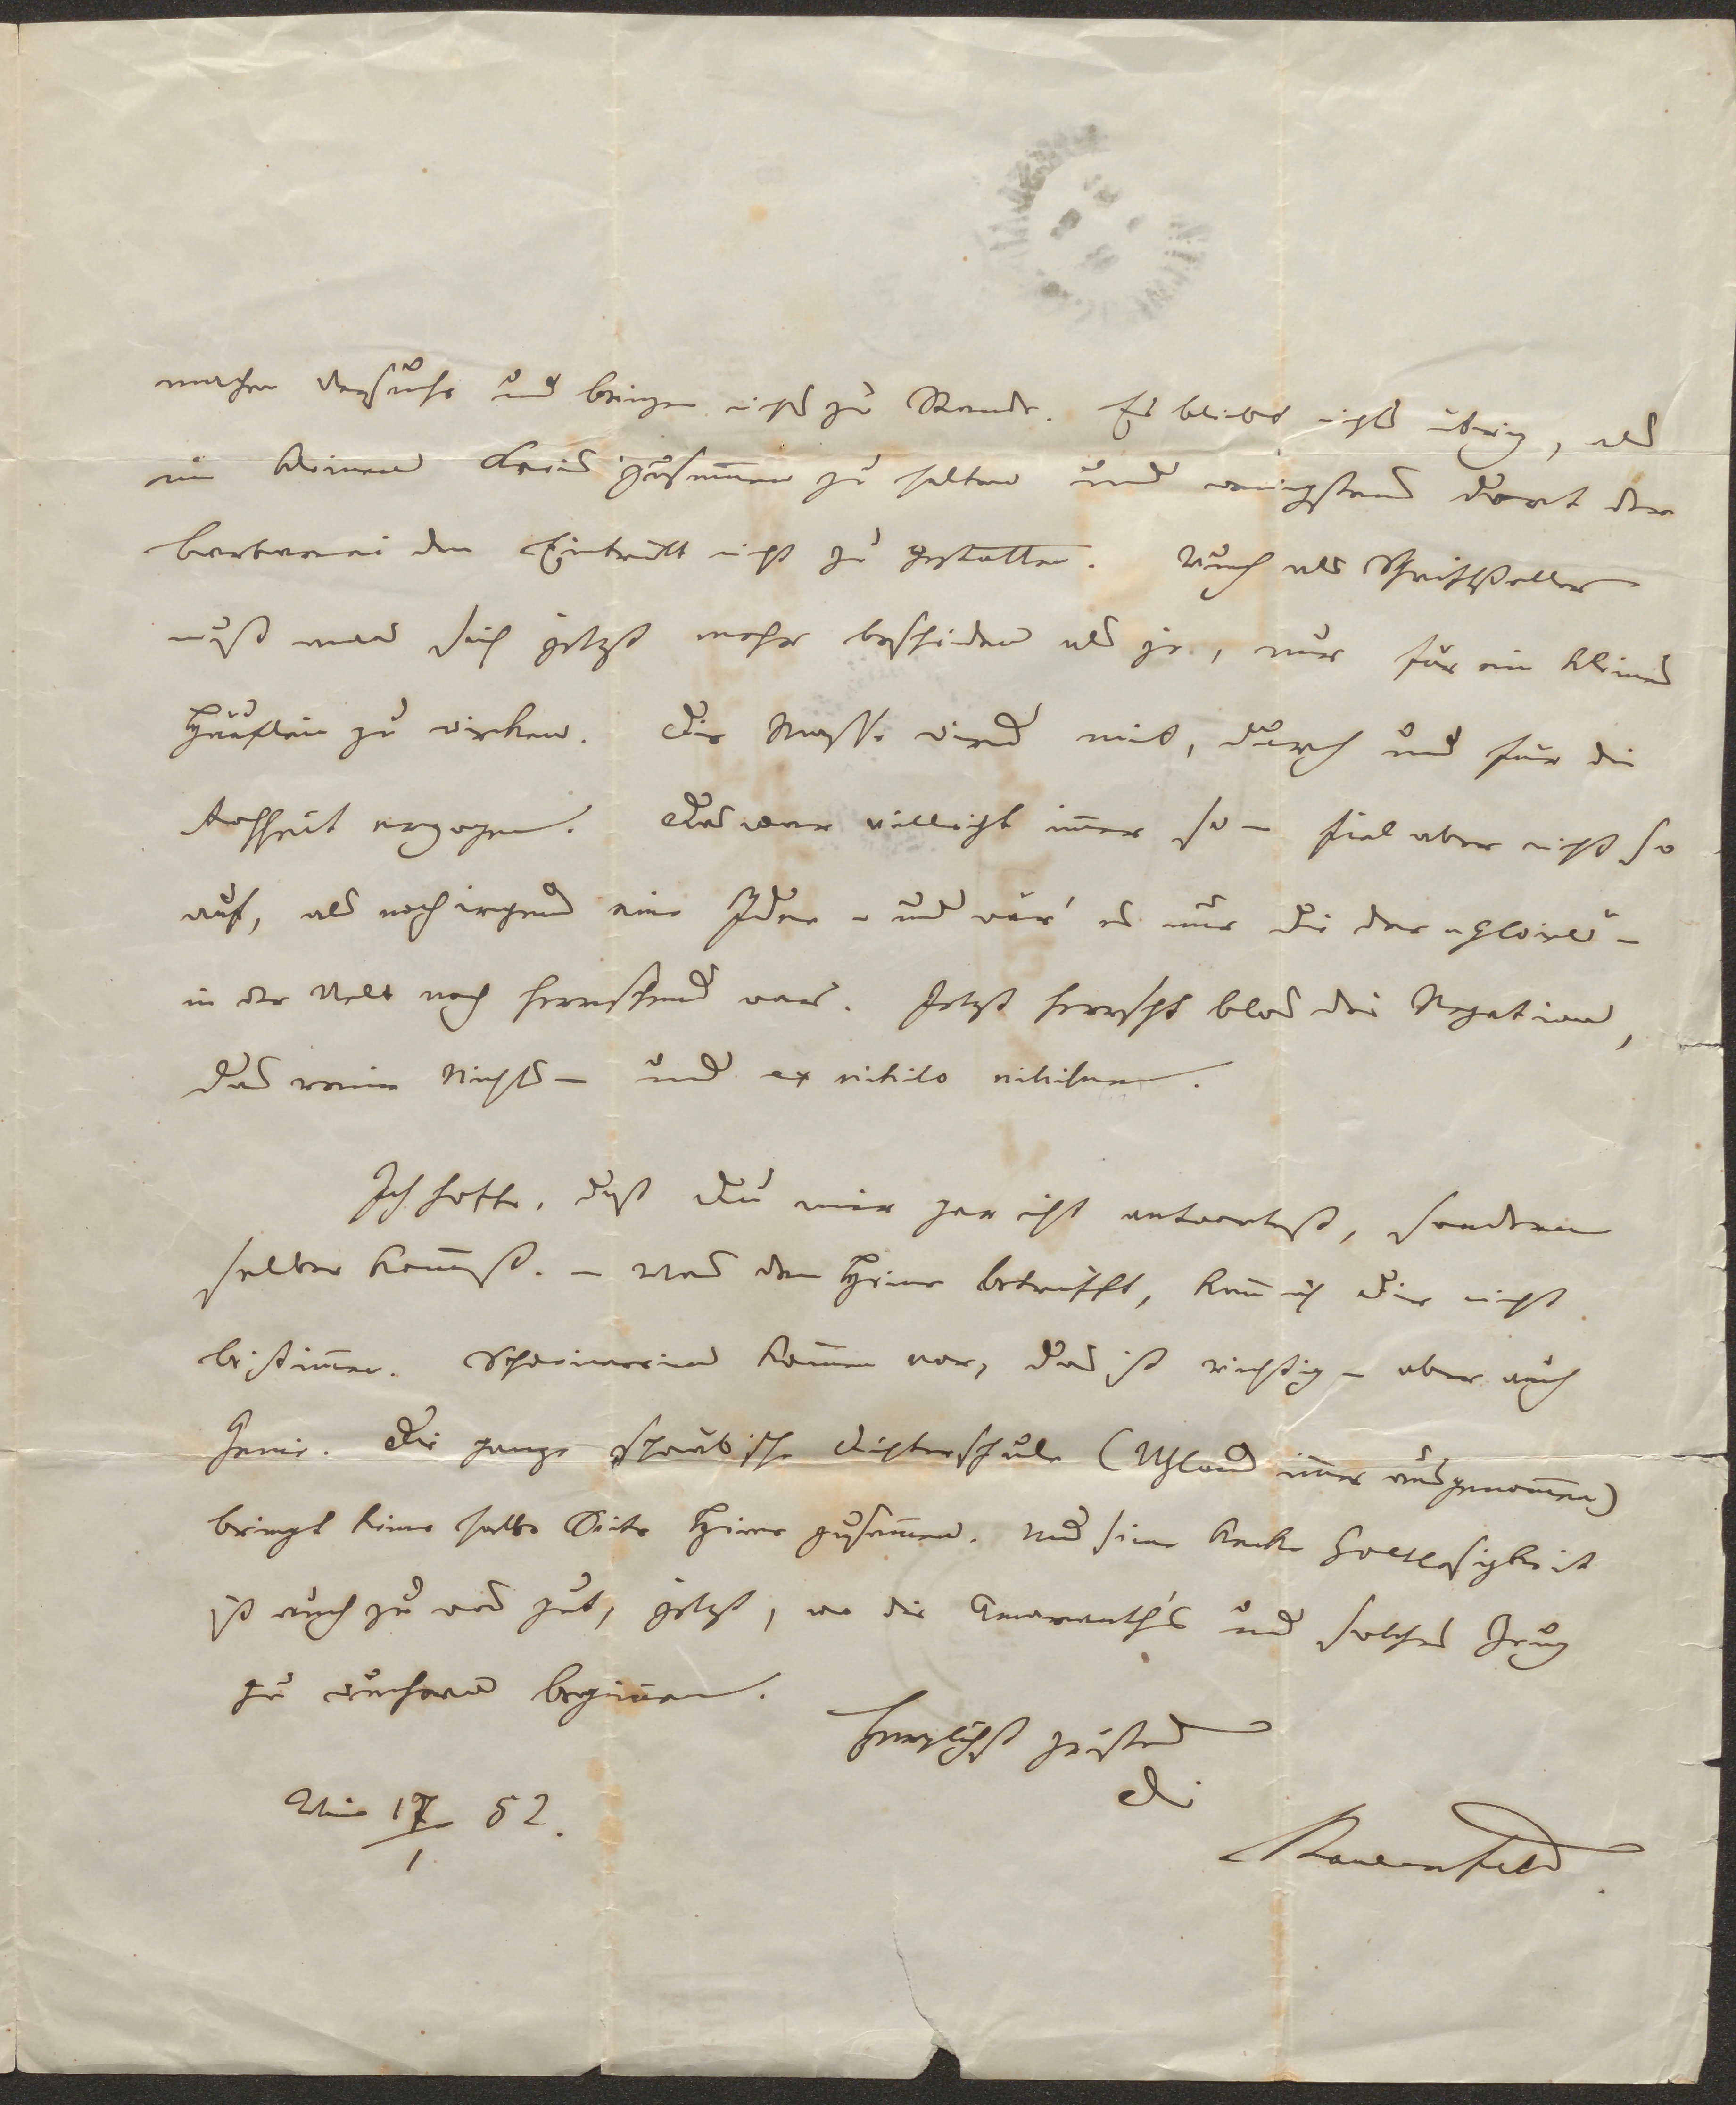 machen Versuche und bringen nichts zu Stande. Es bleibt nichts übrig, als
im kleinen Kreis zusam̄en zu halten und wenigstens dort der
Barbarei den Eintritt nicht zu gestatten. Auch als Schriftsteller
muß man sich jetzt mehr bescheiden als je, nur für ein kleines
Häuflein zu wirken. Die Masse wird mit, durch und für die
Rohheit erzogen. Das war vielleicht im̄er so – fiel aber nicht so
auf, als noch irgend eine Idee – und wär' es nur die der „gloire" –
in der Welt noch herrschend war. Jetzt herrscht blos die Negation,
das reine Nichts – und ex nihilo nihilum.
Ich hoffe, daß Du mir gar nicht antwortest, sondern
selber kom̄st. – Was den Heine betrifft, kan̄ ich Dir nicht
beistim̄en. Schweinereien kom̄en vor, das ist richtig – aber auch
Genie. Die ganze schwäbische Dichterschule (Uhland im̄er ausgenom̄en)
bringt keine halbe Seite Heine zusam̄en. Und seine kecke Gottlosigkeit
ist auch zu was gut, jetzt, wo die Amaranth's und solches Zeug
zu wuchern begin̄en.
Herzlichst grüßend
Dein
Bauernfeld
Wien 17/1 52.